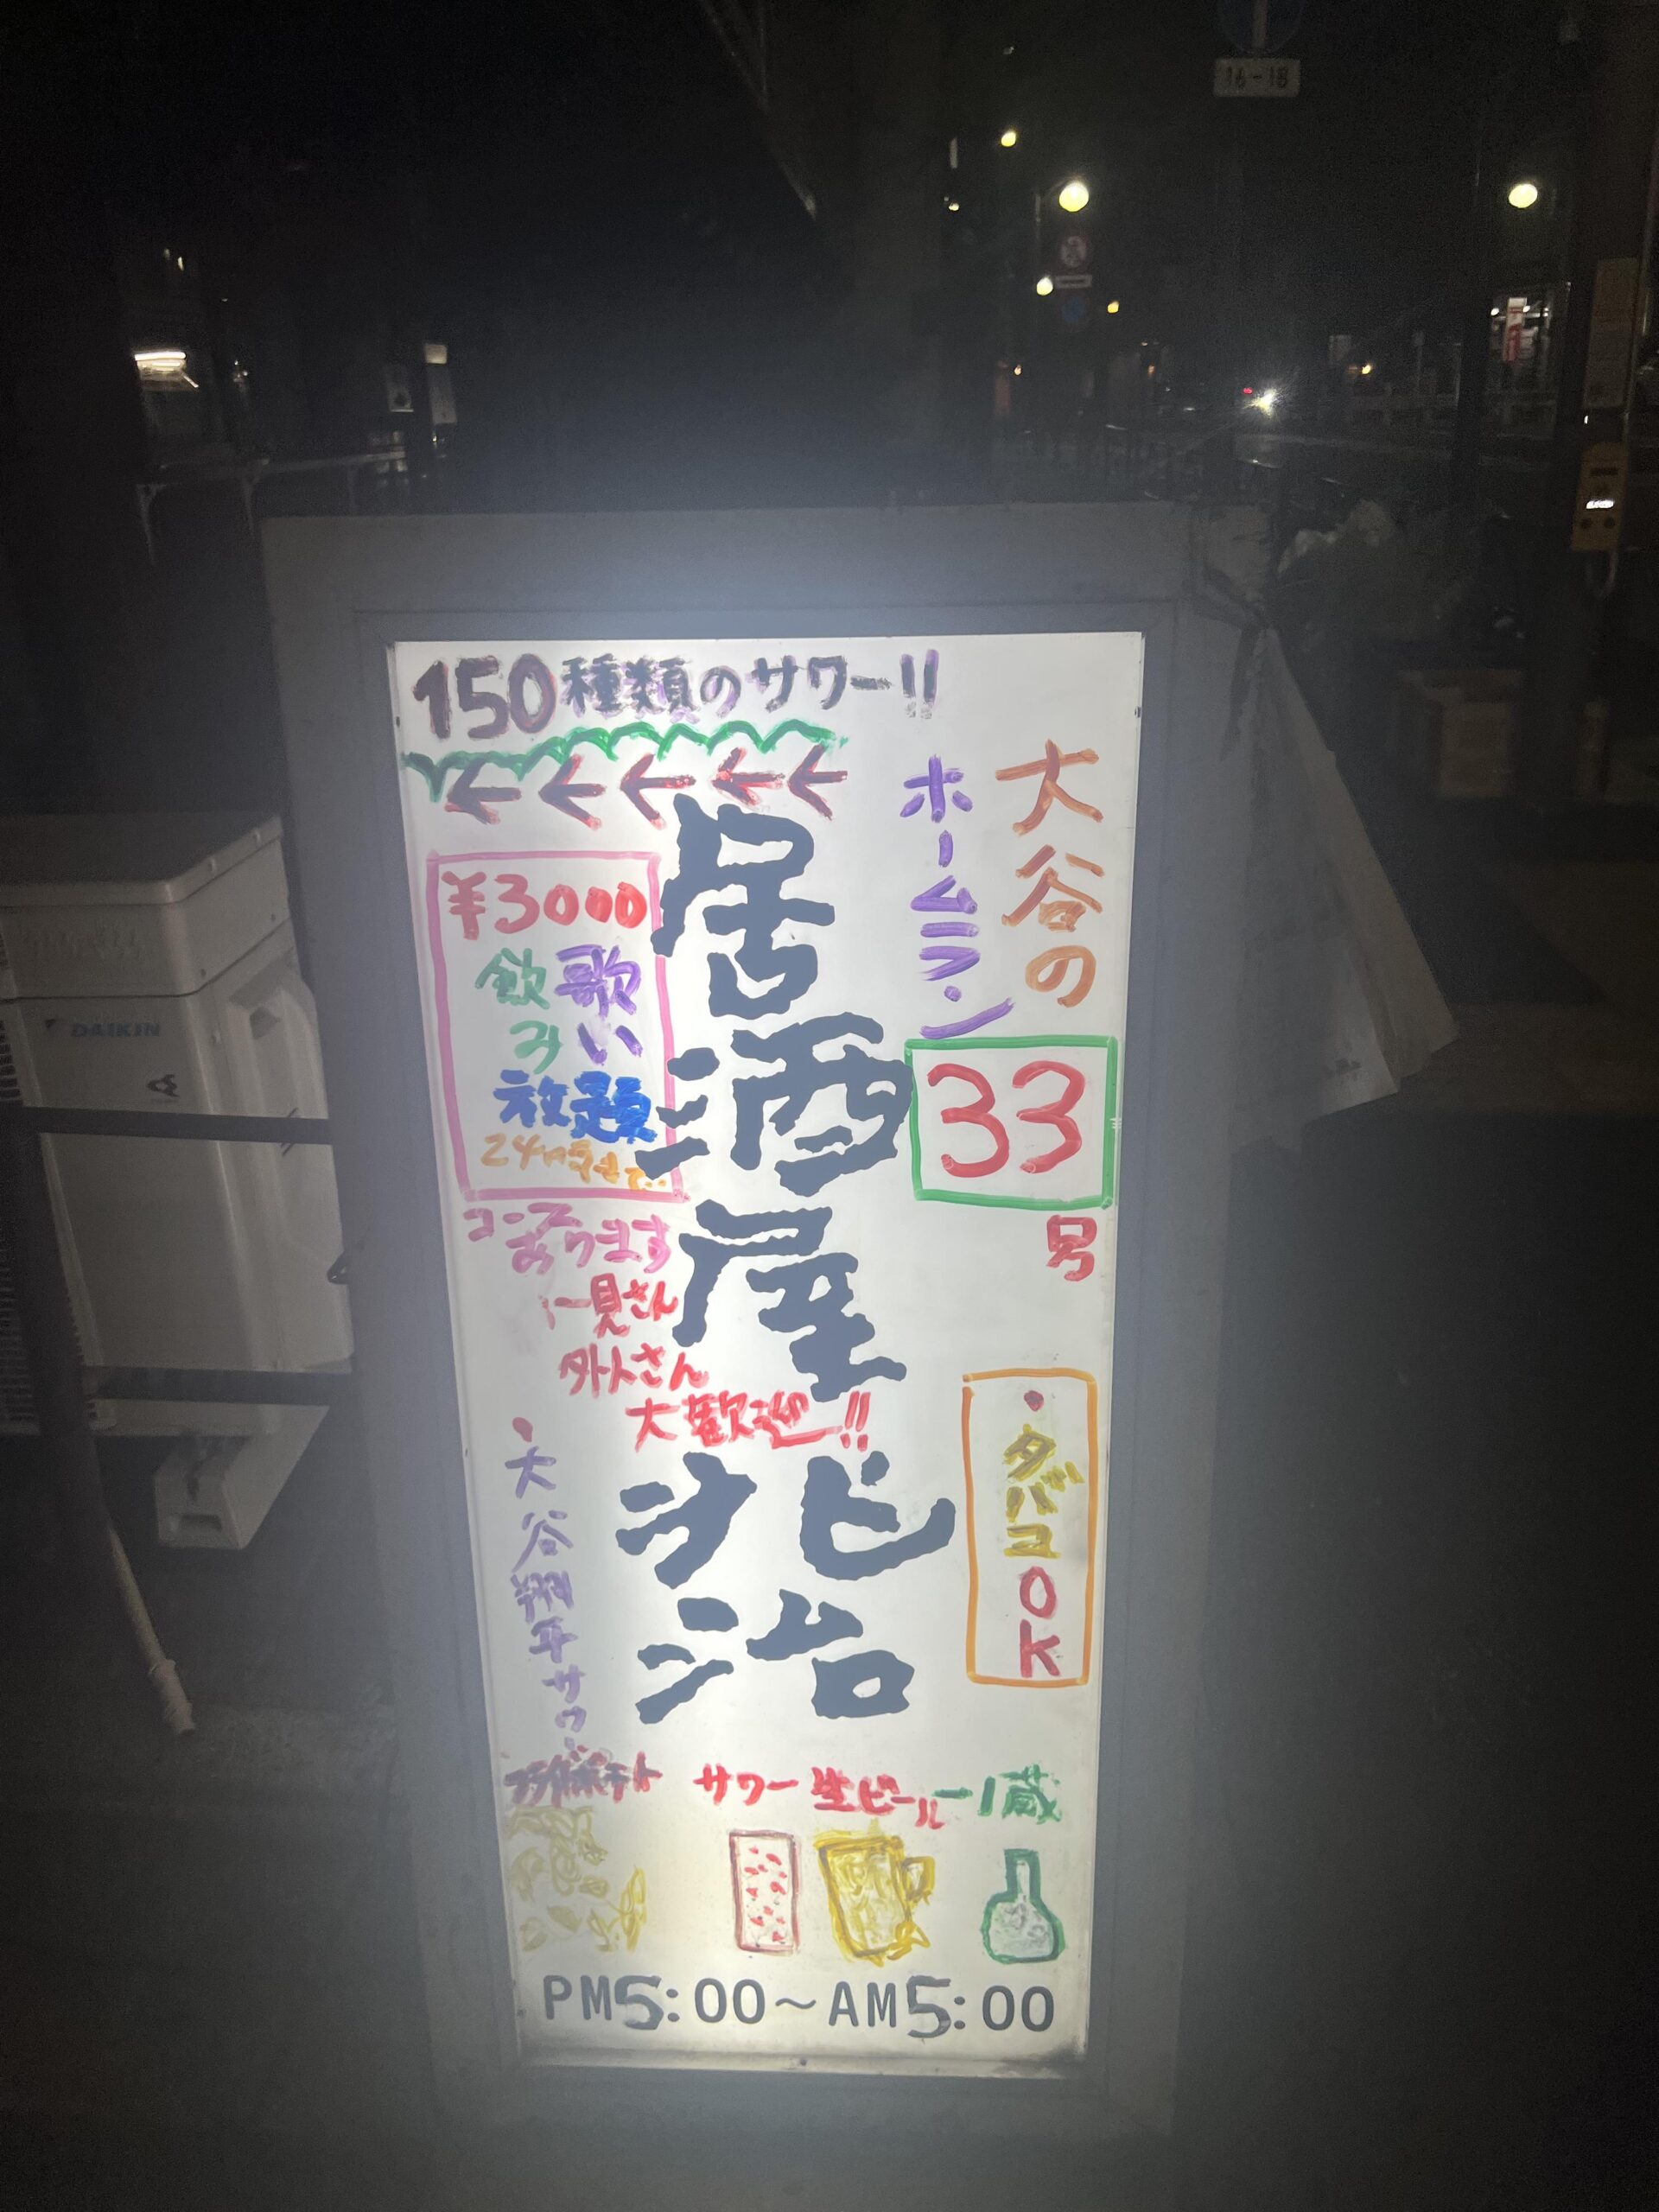 16-18
150種類のサワー!!
大谷の
ホームラン
33
号
¥3000
歌い
飲み
放題
24時まで..
コース
あります
居酒屋
一見さん
外人さん
大歓迎!!
・タバコOK
・大谷翔平サワー
フライドポテト
サワー
生ビール
一ノ蔵
PM5:00～AM5:00
DAIKIN